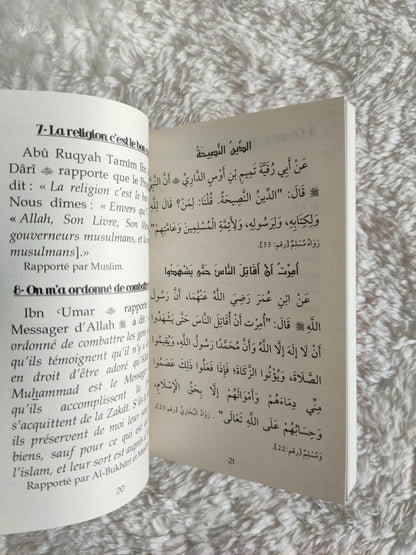 7- La religion c'est le bon
Abû Ruqyah Tamim
Dârî rapporte que le
dit : « La religion c'est le
Nous dîmes : « Envers
« Allah, Son Livre, Son
gouverneurs musulmans, et
musulmans].»
Rapporté par Muslim.
8- On m'a ordonné de
Ibn ‘Umar rapporte
Messager d'Allah ﷺ a
ordonné de combattre les
qu'ils témoignent qu'il n'y a
en droit d'être adoré
Muhammad est le Messager
qu'ils accomplissent la
s'acquittent de la Zakât.
ils préservent de moi leur
biens, sauf pour ce qui est
l'islam, et leur sort est
Rapporté par Al-Bukhârî et
20
الدِّينُ النَّصِيحَةُ
عَنْ أَبِي رُقَيَّةَ تَمِيمِ بْنِ أَوْسٍ الدَّارِيِّ ﷺ أَنَّ
ﷺ قَالَ: "الدِّينُ النَّصِيحَةُ. قُلْنَا: لِمَنْ؟ قَالَ
وَلِكِتَابِهِ، وَلِرَسُولِهِ، وَلِأَئِمَّةِ الْمُسْلِمِينَ وَعَامَّتِهِمْ"
رَوَاهُ مُسْلِمٌ [رقم:55].
أُمِرْتُ أَنْ أُقَاتِلَ النَّاسَ حَتَّى يَشْهَدُوا
عَنْ ابْنِ عُمَرَ رَضِيَ اللَّهُ عَنْهُمَا، أَنَّ رَسُولَ
اللَّهِ ﷺ قَالَ: "أُمِرْت أَنْ أُقَاتِلَ النَّاسَ حَتَّى يَشْهَدُوا
أَنْ لَا إلَهَ إلَّا اللَّهُ وَأَنَّ مُحَمَّدًا رَسُولُ اللَّهِ، وَيُقِيمُوا
الصَّلَاةَ، وَيُؤْتُوا الزَّكَاةَ؛ فَإِذَا فَعَلُوا ذَلِكَ عَصَمُوا
مِنِّي دِمَاءَهُمْ وَأَمْوَالَهُمْ إلَّا بِحَقِّ الْإِسْلَامِ،
وَحِسَابُهُمْ عَلَى اللَّهِ تَعَالَى" . رَوَاهُ الْبُخَارِيُّ [رقم:25]،
وَمُسْلِمٌ [رقم:22].
21